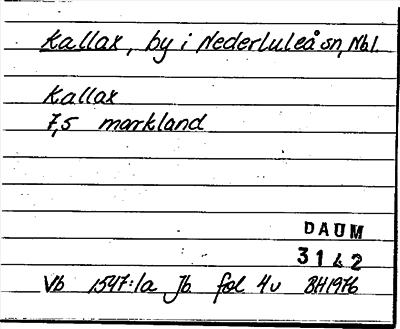 Kallax, by i Nederluleå sn, Nbl.
Kallax
7,5 markland
DAUM
3142
Vb 1547:1a Jb fol 4v BH1976